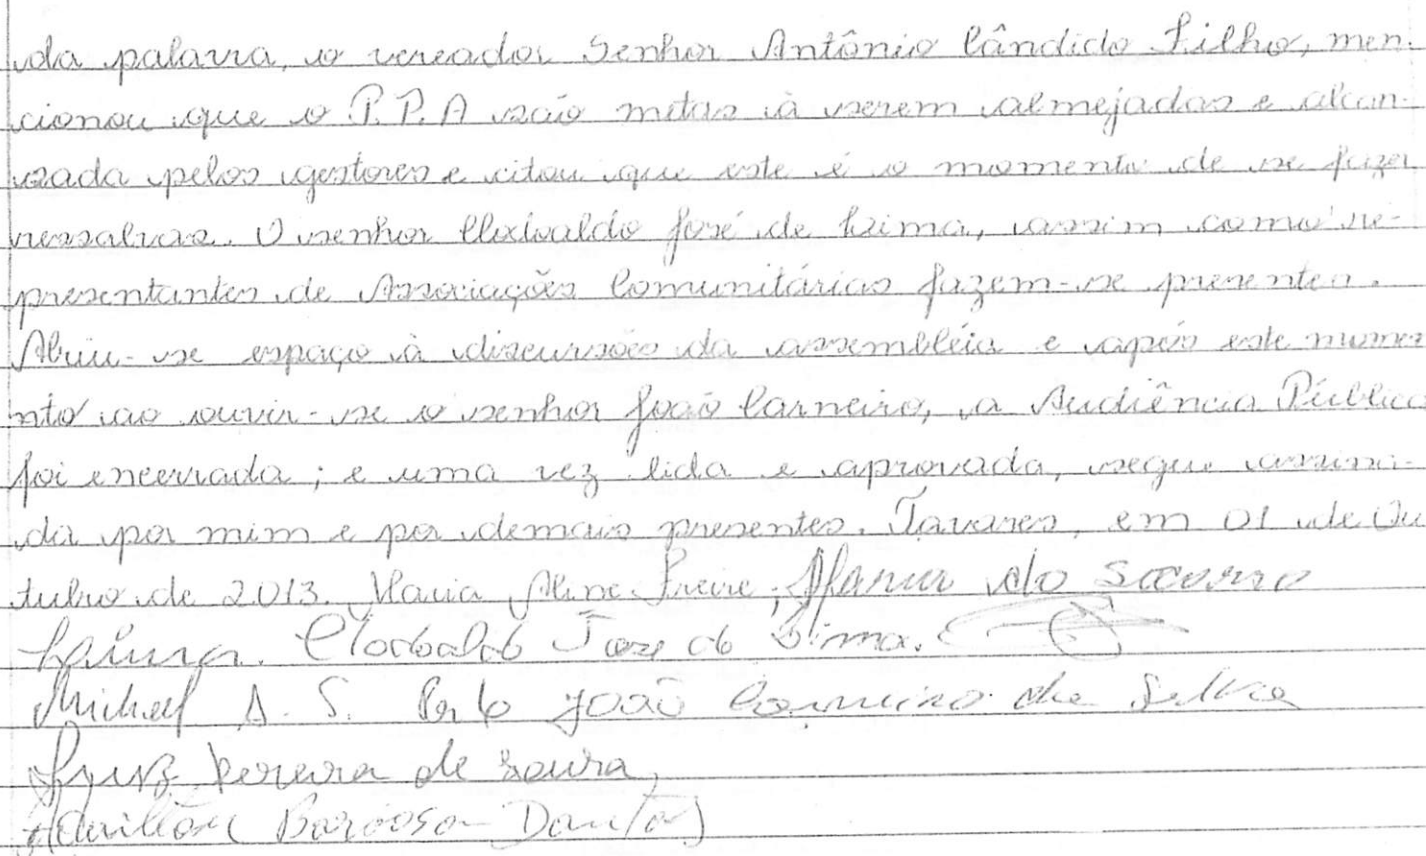 da palavra, o vereador Senhor Antônio Cândido Filho, men-
cionou que o P.P.A são metas à serem almejadas e alcan-
sada pelos gestores e citou que este é o momento de se fazer
ressalvas. O senhor Clodoaldo José de Lima, assim como re-
presentantes de Associações Comunitárias fazem-se presentes.
Abriu-se espaço à discursões da assembléia e após este momen
nto ao ouvir-se o senhor João Carneiro, a Audiência Pública
foi encerrada; e uma vez lida e aprovada, segue assina-
da por mim e por demais presentes. Tavares, em 01 de Ou
tubro de 2013. Maria Aline Freire; Maria do Socorro
Clodoaldo José de Lima.
A. S. João Carneiro da Silva
Pereira de Souza,
Barbosa Dantas